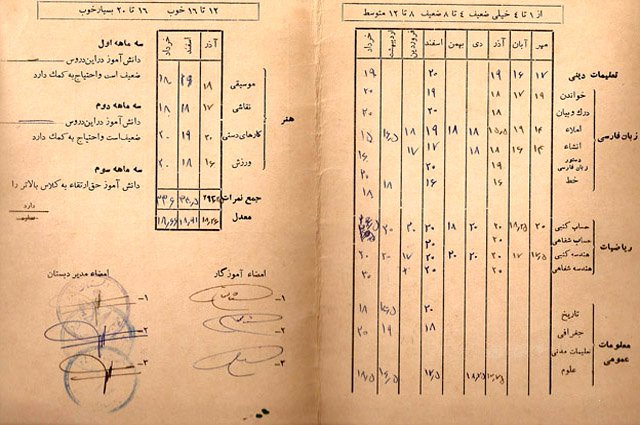 از ۱ تا ۴ خیلی ضعیف ۴ تا ۸ ضعیف ۸ تا ۱۲ متوسط
مهر آبان آذر دی بهمن اسفند فروردین اردیبهشت خرداد
تعلیمات دینی ۱۷ ۱۶ ۱۹ ۲۰ ۱۹
زبان فارسی
خواندن ۱۹ ۱۷ ۱۸ ۱۹ ۲۰
درک و بیان ۱۸ ۲۰ ۲۰
املاء ۱۴ ۱۹ ۱۵٫۵ ۱۸ ۱۸ ۱۹ ۱۸ ۱۶٫۵ ۱۵
انشاء ۱۴ ۱۶ ۱۸ ۱۸ ۱۷ ۱۷
دستور زبان فارسی ۱۹ ۲۰ ۱۶
خط ۱۶ ۱۶ ۱۸ ۲۰
۱۸
ریاضیات
حساب کتبی ۲۰ ۱۸٫۲۵ ۲۰ ۲۰ ۱۸ ۲۰ ۲۰ ۲۰
حساب شفاهی ۲۰ ۲۰
هندسه کتبی ۱۶٫۵ ۱۷ ۲۰ ۲۰ ۲۰ ۲۰ ۱۷ ۲۰ ۲۰
هندسه شفاهی ۲۰ ۲۰ ۲۰
معلومات عمومی
تاریخ ۲۰ ۱۶٫۵ ۱۸
جغرافی ۱۸ ۱۹ ۲۰
تعلیمات مدنی
علوم ۱۸٫۷۵ ۱۷٫۵ ۱۶٫۵ ۱۸٫۵
۱۲ تا ۱۶ خوب ۱۶ تا ۲۰ بسیار خوب
آذر اسفند خرداد
هنر
موسیقی ۱۸ ۱۸
نقاشی ۱۷ ۱۸ ۱۸
کارهای دستی ۲۰ ۲۰ ۱۹
ورزش ۱۶ ۱۸ ۲۰
جمع نمرات ۳۳۶
معدل ۱۸٫۶۶
سه ماهه اول
دانش آموز در این دروس
ضعیف است و احتیاج به کمک دارد
سه ماهه دوم
دانش آموز در این دروس
ضعیف است و احتیاج به کمک دارد
سه ماهه سوم
دانش آموز حق ارتقاء به کلاس بالاتر را
دارد
ندارد
امضاء آموزگار
۱-
۲-
۳-
امضاء مدیر دبستان
۱-
۲-
۳-